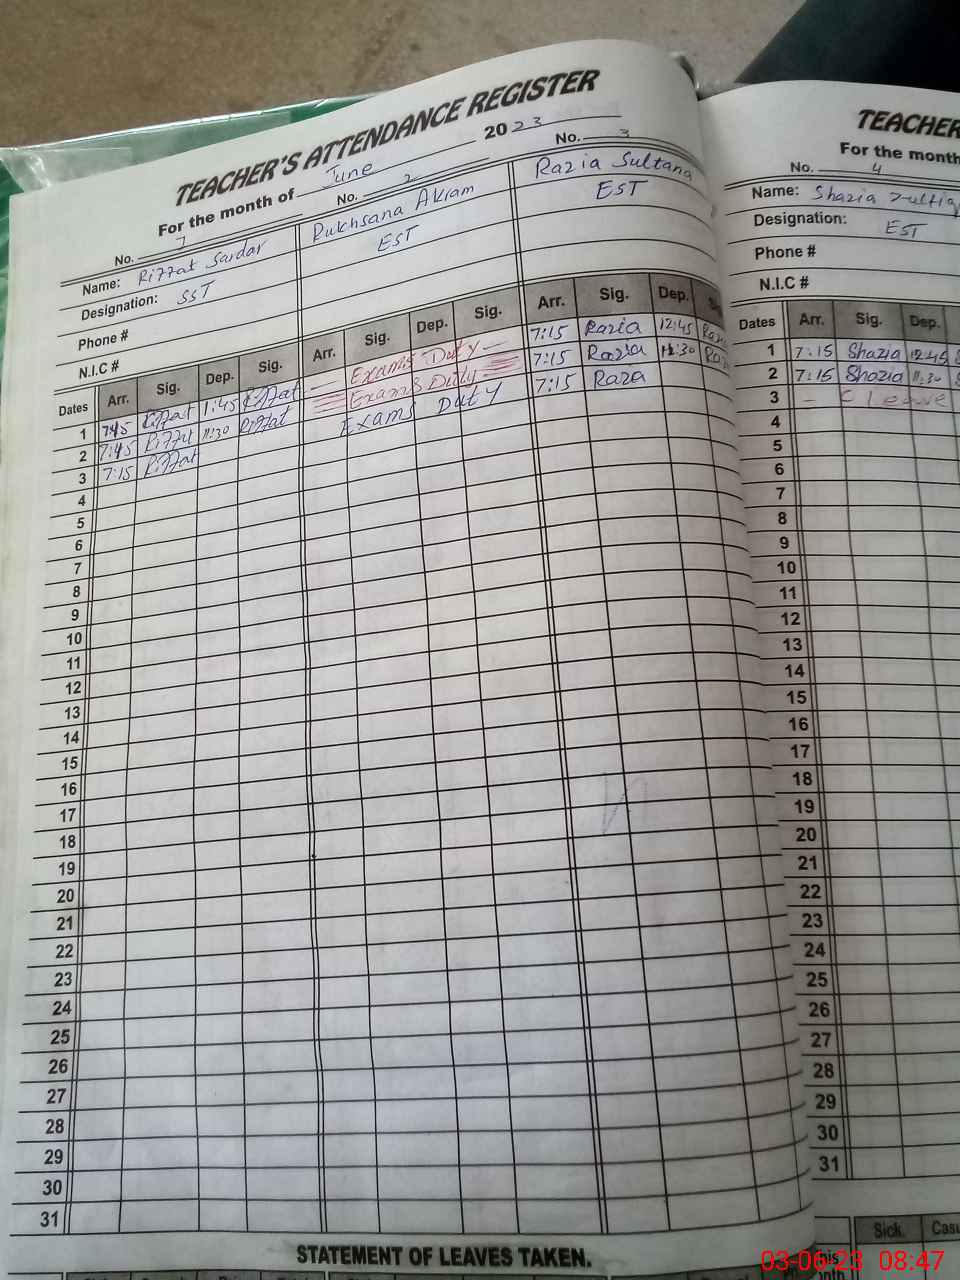 TEACHER'S ATTENDANCE REGISTER
For the month of June 2023
No. 1 No. 2 No. 3
Name: Riffat Sardar Rukhsana Akram Razia Sultana
Designation: SST EST EST
Phone #
N.I.C #
Dates Arr. Sig. Dep. Sig. Arr. Sig. Dep. Sig. Arr. Sig. Dep.
1 7:45 Riffat 1:45 Riffat — Exams Duty — 7:15 Razia 12:45
2 7:45 Riffat 11:30 Riffat Exams Duty 7:15 Razia 11:30
3 7:15 Riffat Exams Duty 7:15 Raza
4
5
6
7
8
9
10
11
12
13
14
15
16
17
18
19
20
21
22
23
24
25
26
27
28
29
30
31
STATEMENT OF LEAVES TAKEN.
TEACHER
For the month
No. 4
Name: Shazia
Designation: EST
Phone #
N.I.C #
Dates Arr. Sig. Dep.
1 7:15 Shazia 12:45 S
2 7:15 Shazia 11:30 S
3 — C Leave
4
5
6
7
8
9
10
11
12
13
14
15
16
17
18
19
20
21
22
23
24
25
26
27
28
29
30
31
Sick. Casu
03-06-23 08:47